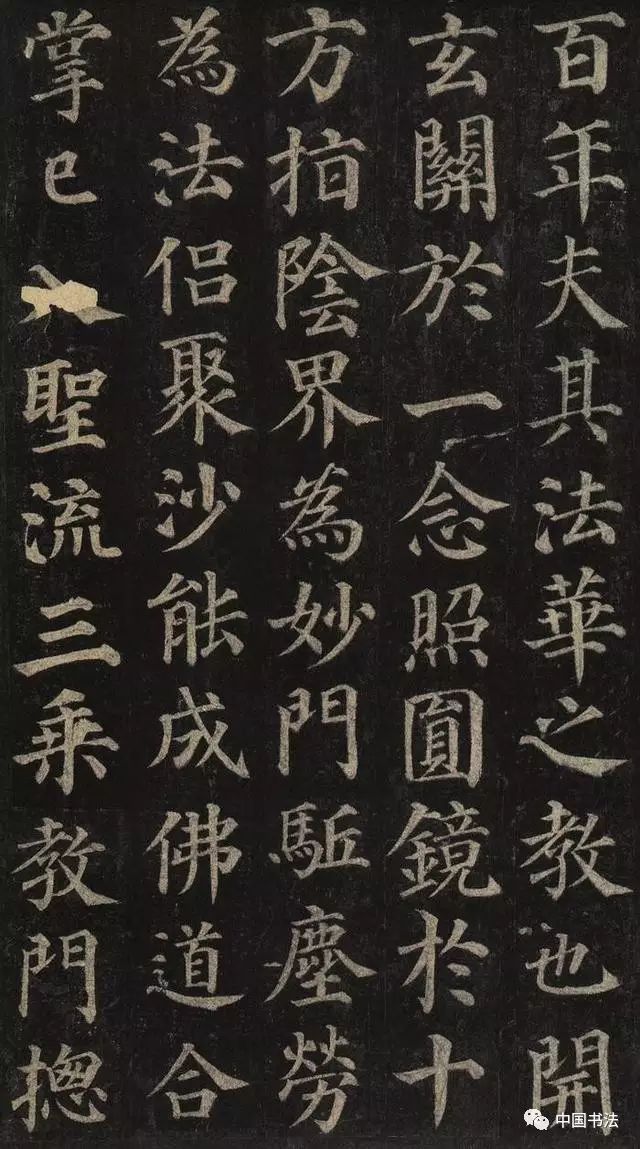 百年夫其法華之教也開
玄關於一念照圓鏡於十
方指陰界為妙門駈塵勞
為法侶聚沙能成佛道合
掌已入聖流三乘教門揔
中国书法